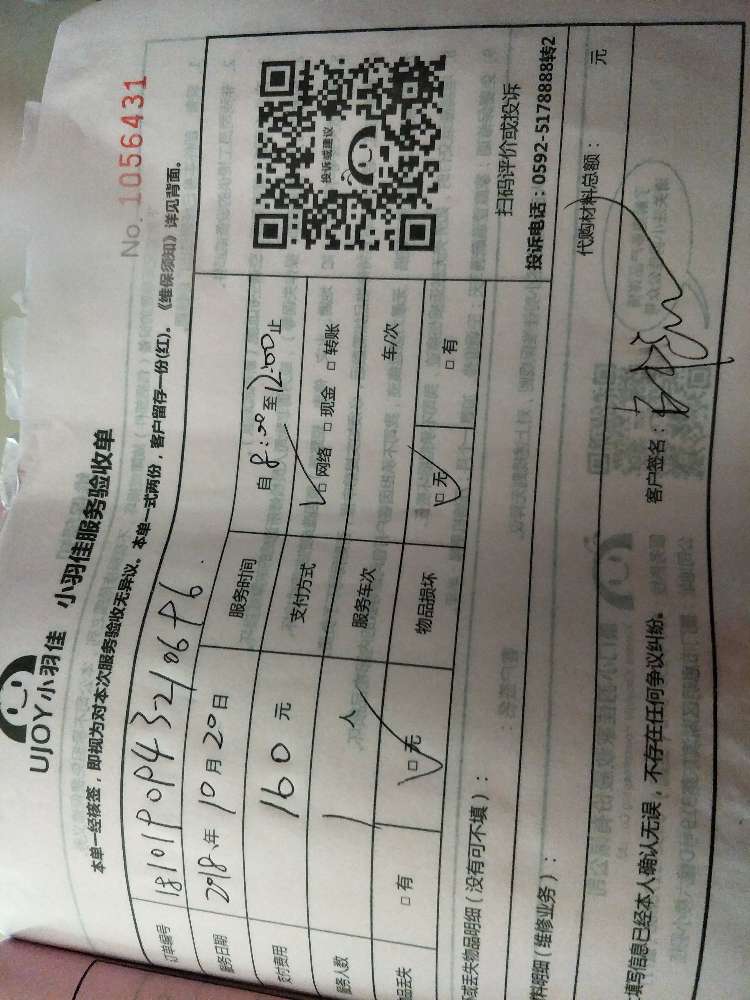 UJOY小羽佳 小羽佳服务验收单
No. 1056431
本单一经核签，即视为对本次服务验收无异议。本单一式两份，客户留存一份(红)。《维保须知》详见背面。
订单编号
服务日期 2018 年 10 月 20 日 服务时间 自 8:00 至 12:00 止
支付费用 160 元 支付方式 □ 网络 □ 现金 □ 转账
服务人数 1 人 服务车次 车/次
品丢失 □ 有 □ 无 物品损坏 □ 无 □ 有
投诉或建议
扫码评价或投诉
投诉电话：0592-5178888转2
或丢失物品明细（没有可不填）：
料明细（维修业务）：
代购材料总额： 元
填写信息已经本人确认无误，不存在任何争议纠纷。 客户签名：